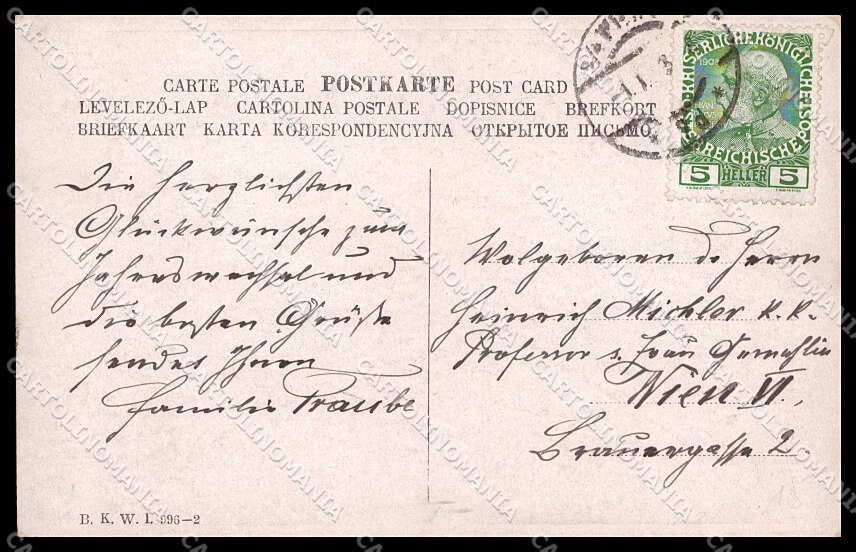 CARTE POSTALE POSTKARTE POST CARD
LEVELEZŐ-LAP CARTOLINA POSTALE DOPISNICE BREFKORT
BRIEFKAART KARTA KORESPONDENCYJNA ОТКРЫТОЕ ПИСЬМО.
KAISERLICHE KÖNIGLICHE ÖSTERREICHISCHE POST
1908
5 HELLER 5
Die herzlichsten
Glückwünsche zum
Jahreswechsel und
die besten Grüße
sendet Ihnen
Familie Traube
Wolgeboren d. Herrn
Heinrich Michler k. k.
Professor s. Frau Gemahlin
Wien VI,
Brauergasse 2.
B. K. W. I. 996-2
CARTOLINOMANIA